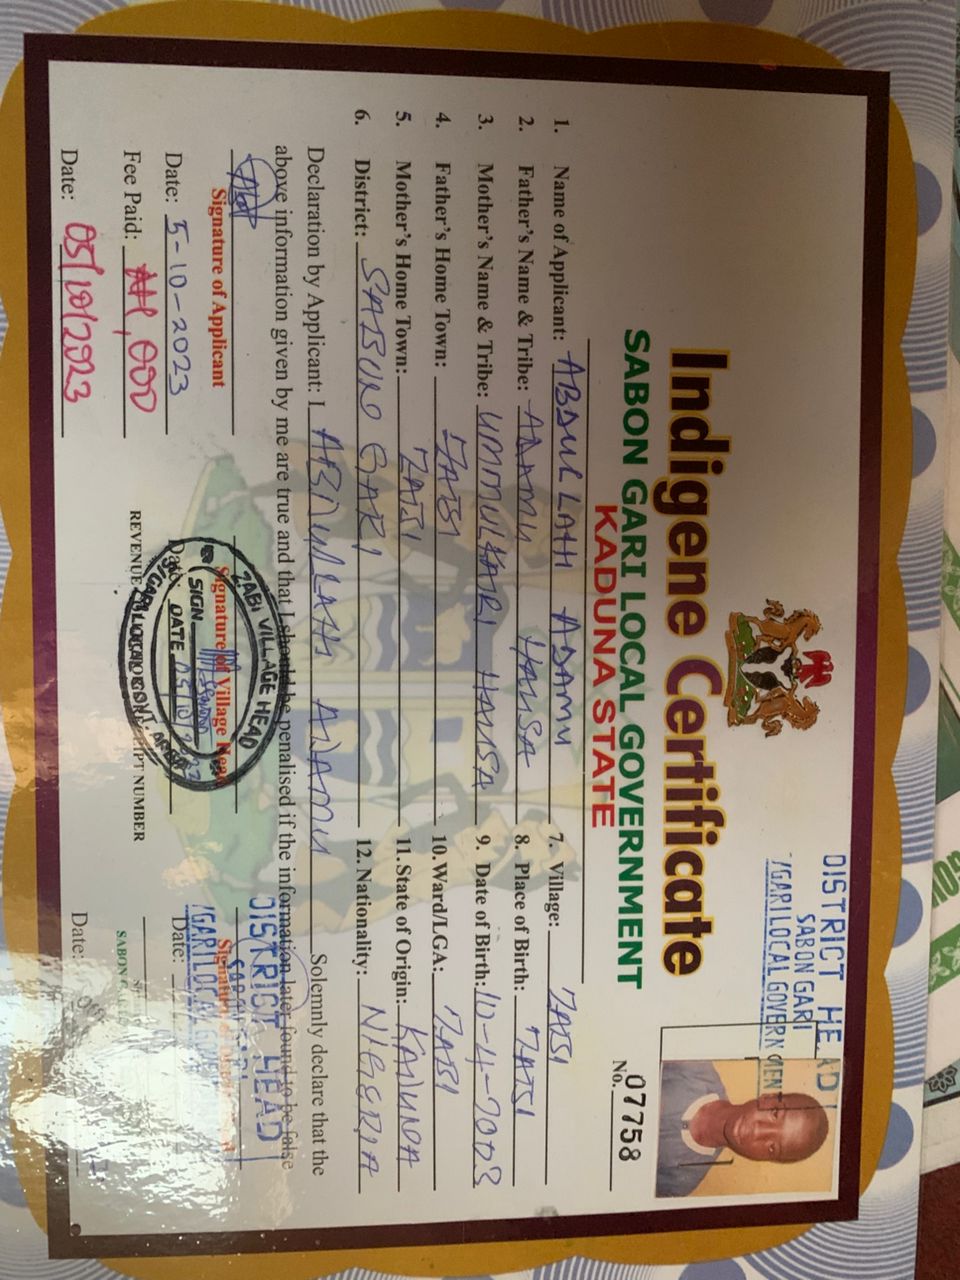 Indigene Certificate
SABON GARI LOCAL GOVERNMENT
KADUNA STATE
DISTRICT HEAD
SABON GARI
/GARI LOCAL GOVERNMENT
No. 07758
1. Name of Applicant: ABDULLAH ADAMU
2. Father's Name & Tribe: ADAMU HAUSA
3. Mother's Name & Tribe: UMMULKAIRI HAUSA
4. Father's Home Town: ZABI
5. Mother's Home Town: ZABI
6. District: SABON GARI
7. Village: ZABI
8. Place of Birth: ZABI
9. Date of Birth: 10-4-2003
10. Ward/LGA: ZABI
11. State of Origin: KADUNA
12. Nationality: NIGERIA
Declaration by Applicant: I ABDULLAH ADAMU Solemnly declare that the
above information given by me are true and that I should be penalised if the information later found to be false
Signature of Applicant
Date: 5-10-2023
Fee Paid: ₦1,000
Date: 05/10/2023
Signature of Village Head
Date:
ZABI VILLAGE HEAD
SIGN
DATE 05/10/2023
REVENUE RECEIPT NUMBER
DISTRICT HEAD
/GARI LOCAL GOVERNMENT
Date:
Date: